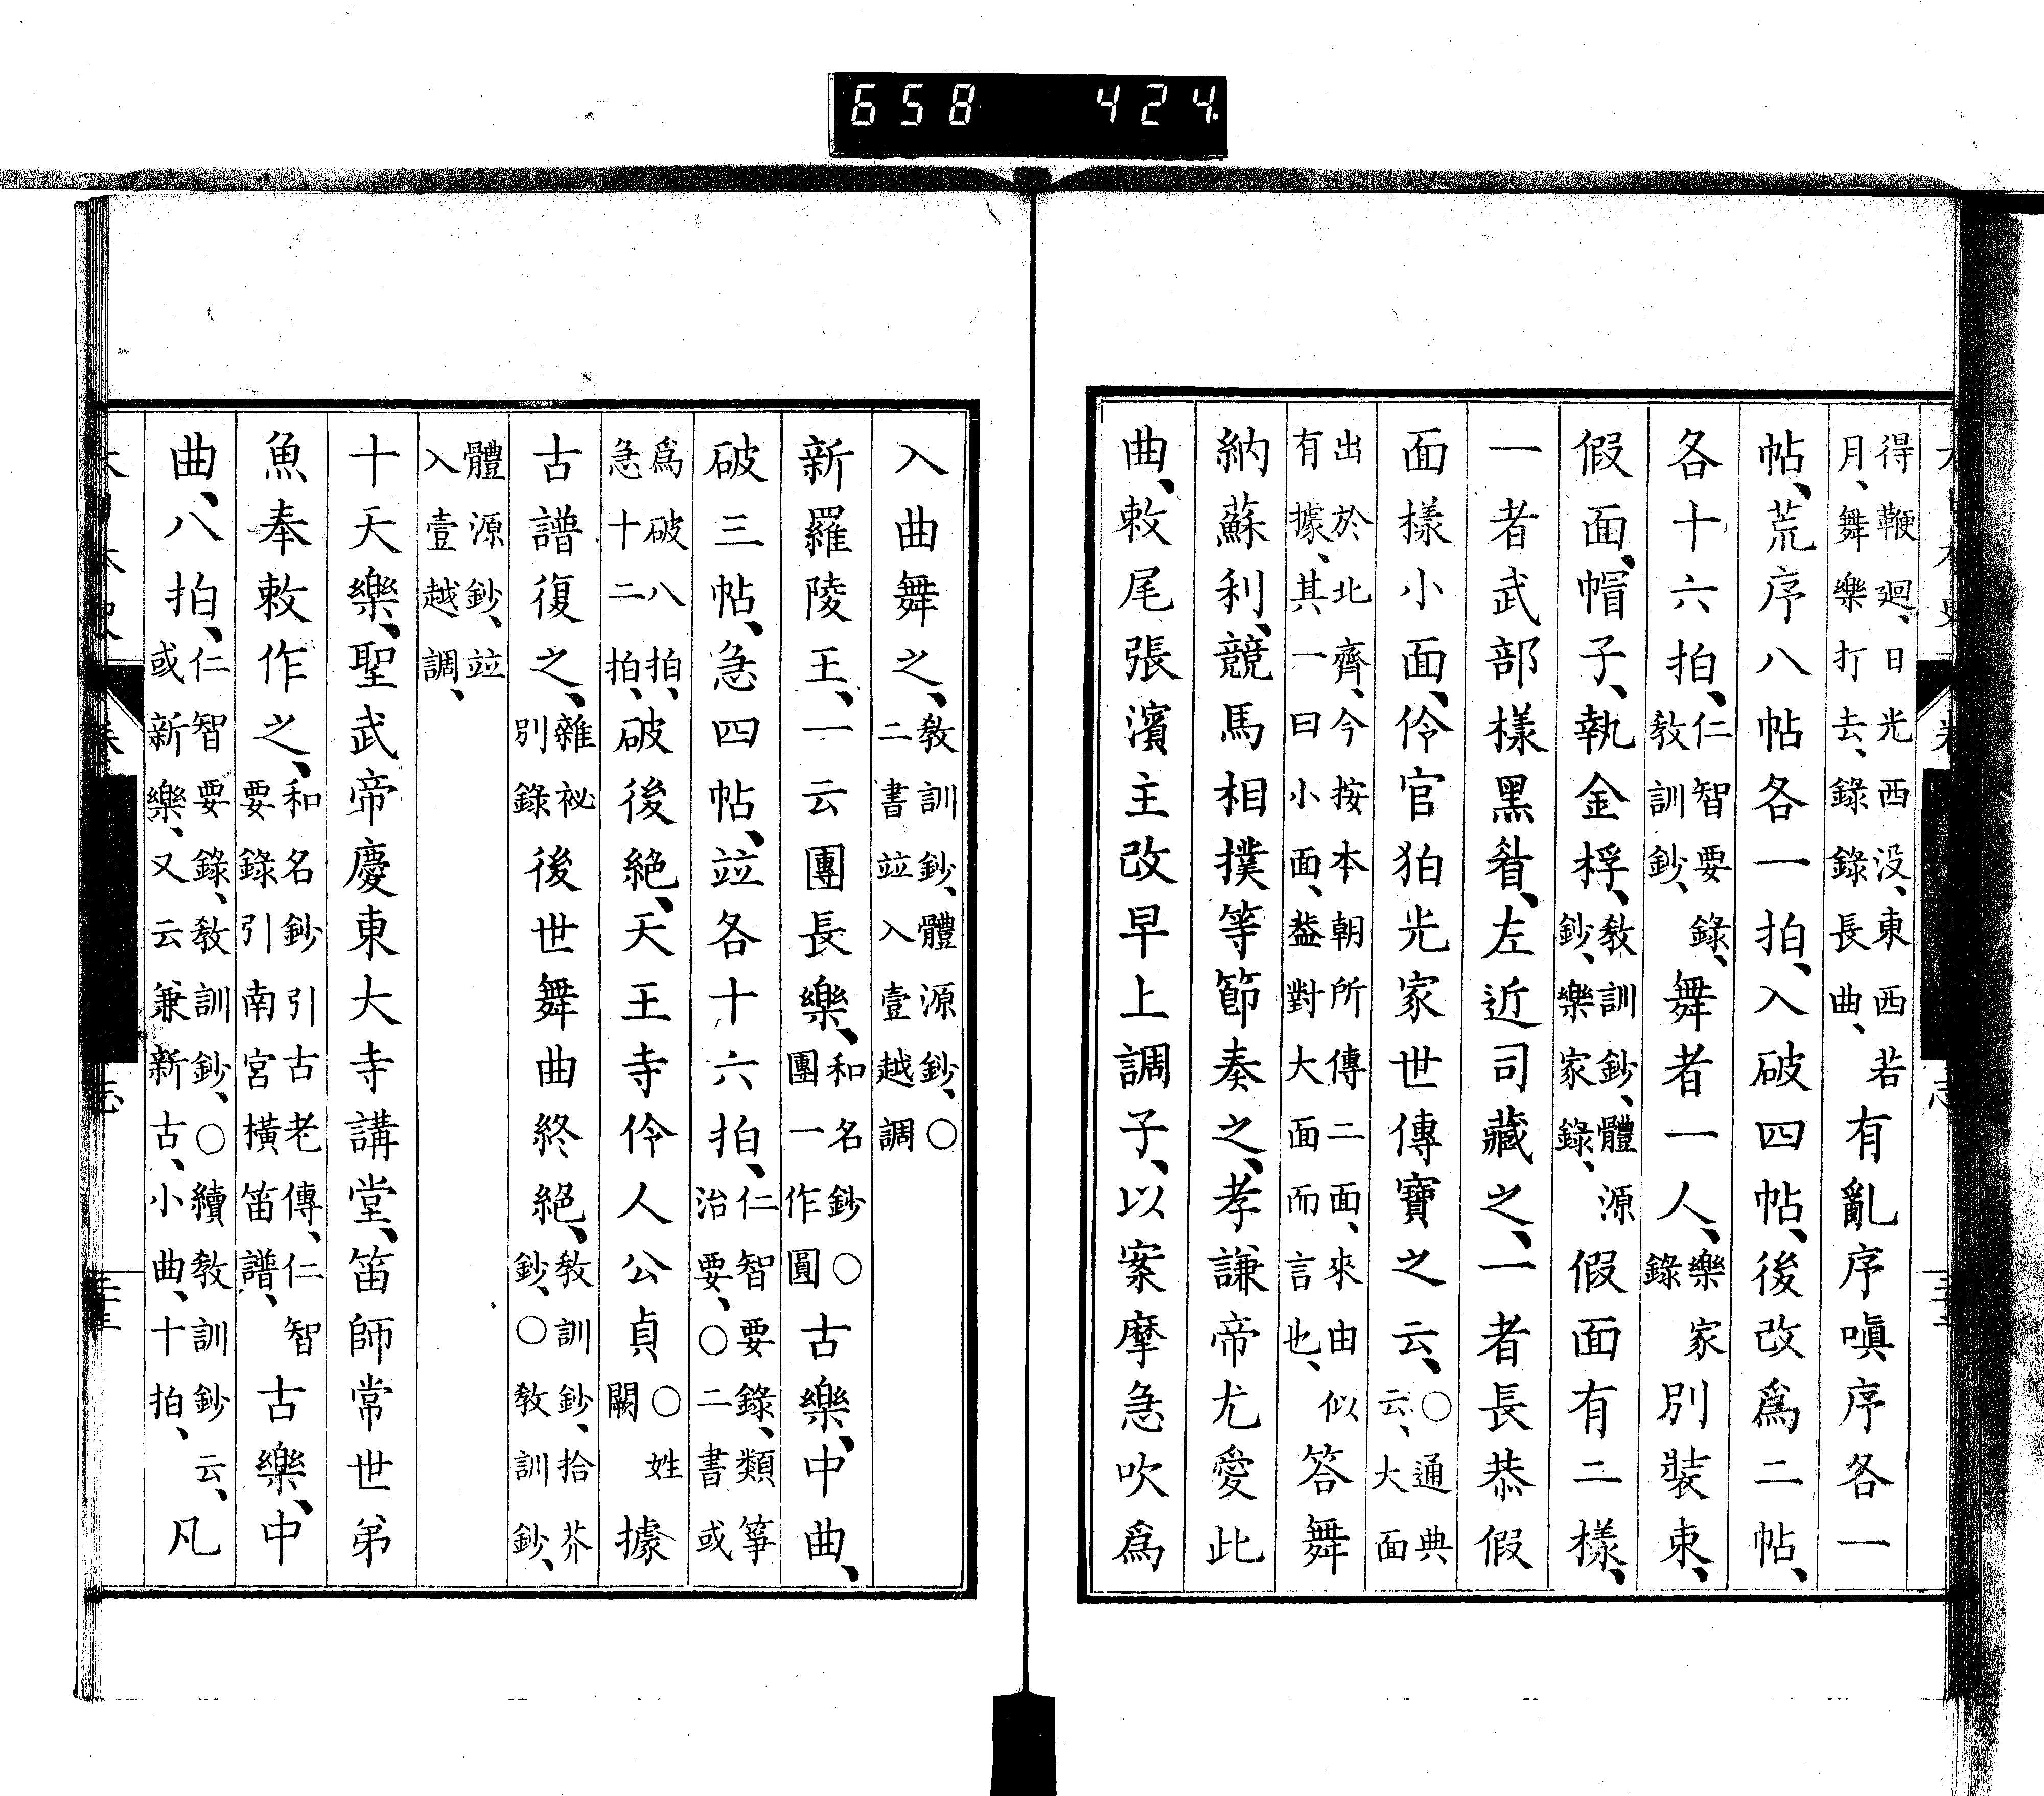 658 424
得鞭廻、日光西没、東西若月、舞樂打去、錄錄長曲、有亂序嗔序各一
帖、荒序八帖各一拍、入破四帖、後改爲二帖、
各十六拍、仁智要錄、教訓鈔、舞者一人、樂家錄別裝束、
假面、帽子、執金桴、教訓鈔、體源鈔、樂家錄、假面有二樣、
一者武部樣黑眉、左近司藏之、一者長恭假
面樣小面、伶官狛光家世傳寶之云、○通典云、大面
出於北齊、今按本朝所傳二面、來由似有據、其一曰小面、蓋對大面而言也、答舞
納蘇利、競馬相撲等節奏之、孝謙帝尤愛此
曲、敕尾張濱主改早上調子、以案摩急吹爲
入曲舞之、教訓鈔、體源鈔、○二書竝入壹越調
新羅陵王、一云團長樂、和名鈔○團一作圓古樂、中曲、
破三帖、急四帖、竝各十六拍、仁智要錄、類箏治要、○二書或
爲破八拍、急十二拍、破後絕、天王寺伶人公貞○姓闕據
古譜復之、雜祕別錄後世舞曲終絕、教訓鈔、拾芥鈔、○教訓鈔、
體源鈔、竝入壹越調、
十天樂、聖武帝慶東大寺講堂、笛師常世弟
魚奉敕作之、和名鈔引古老傳、仁智要錄引南宮橫笛譜、古樂、中
曲、八拍、仁智要錄、教訓鈔、○續教訓鈔云、或新樂、又云兼新古、小曲、十拍、凡